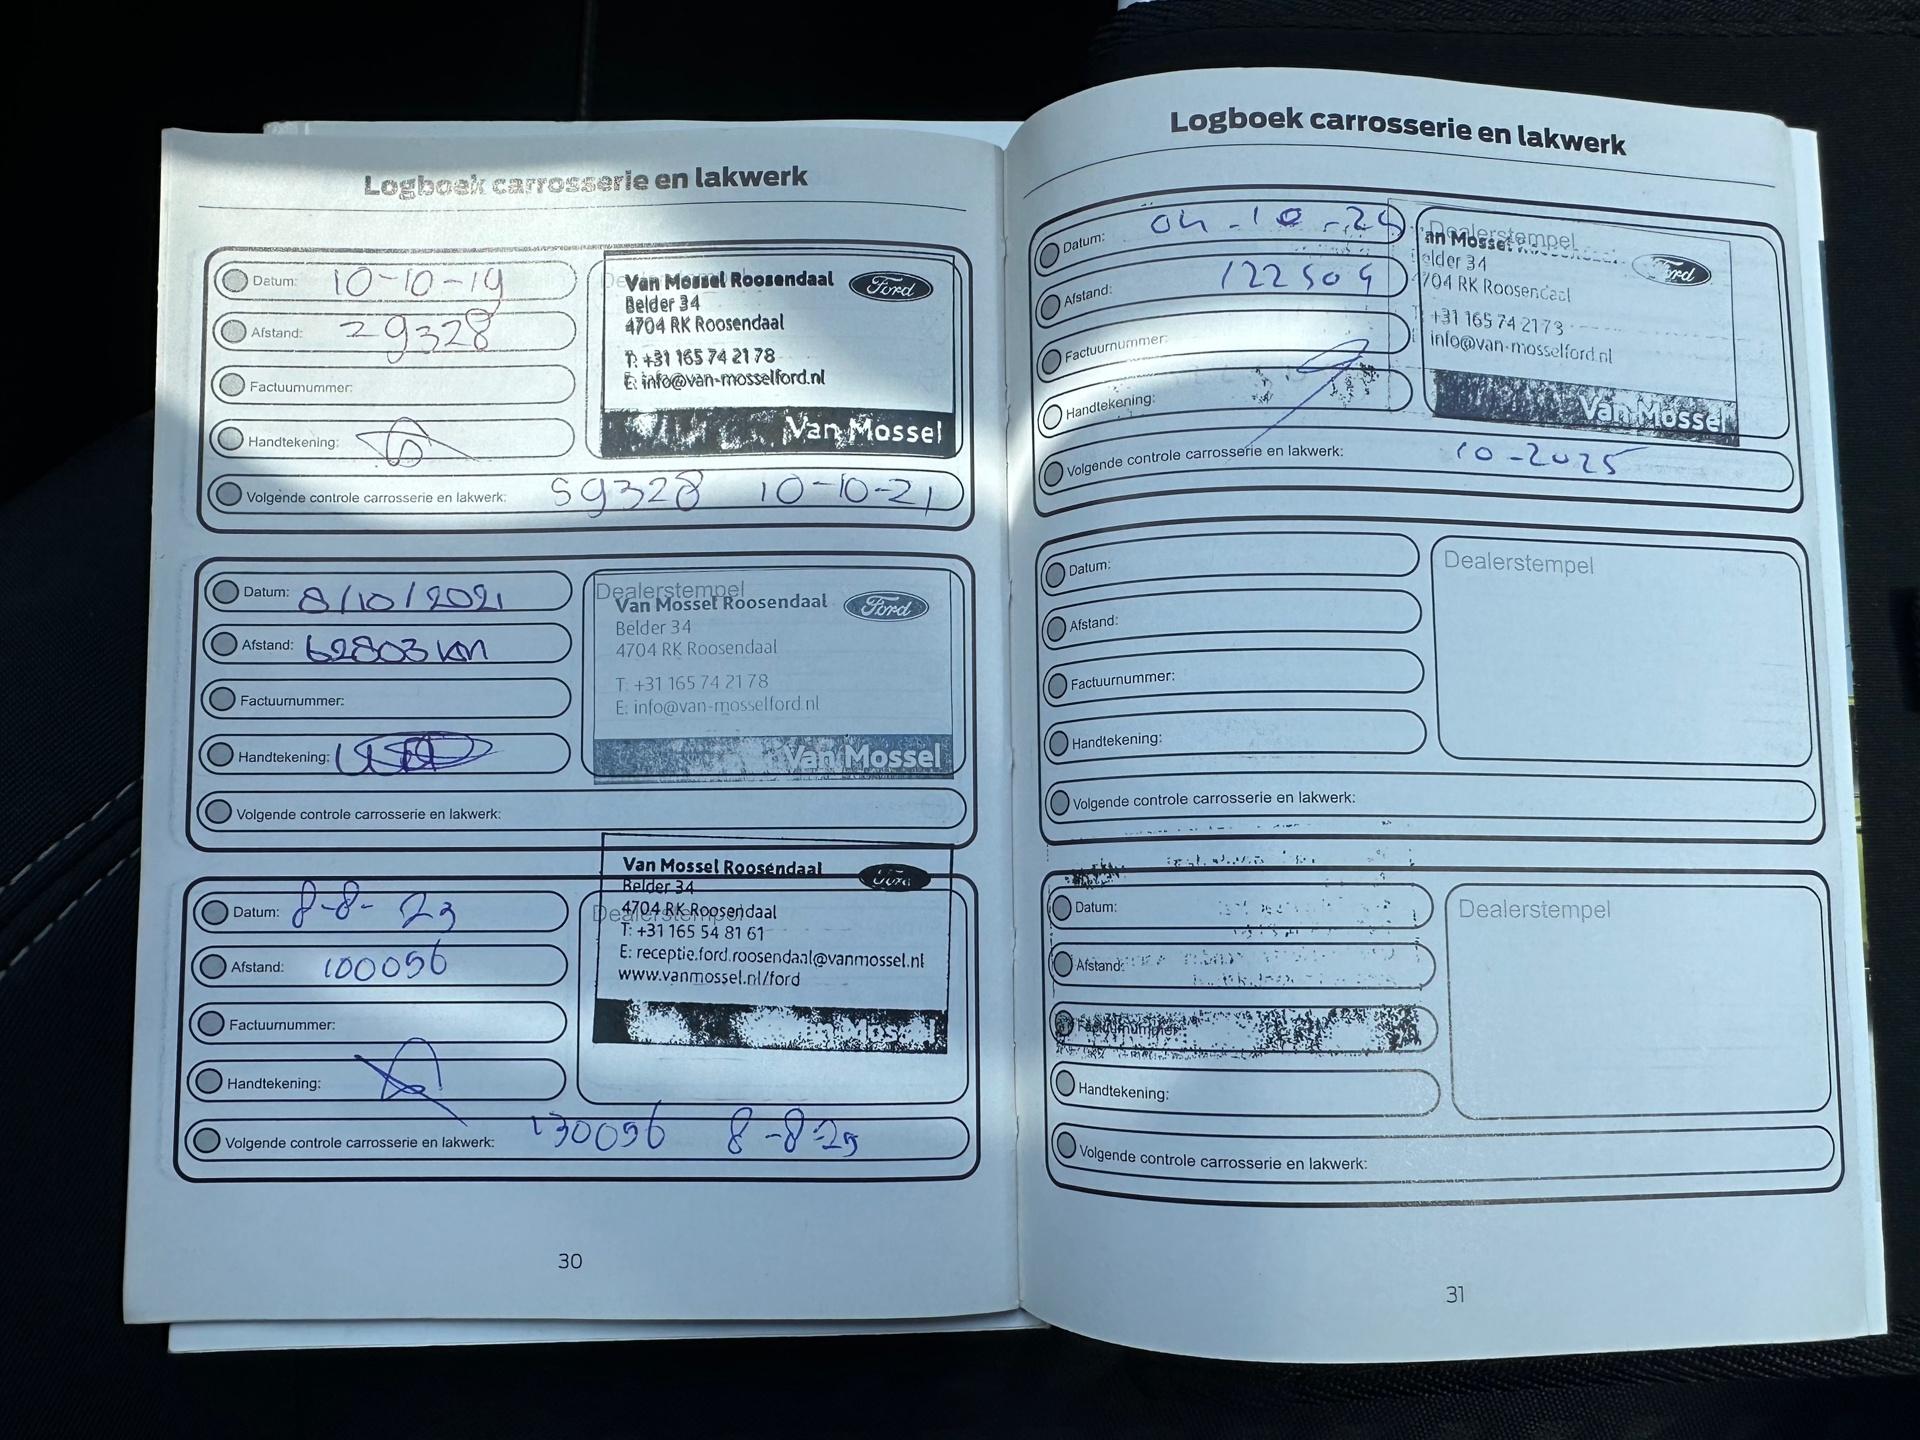 Logboek carrosserie en lakwerk
Datum: 10-10-19
Afstand: 29328
Factuurnummer:
Handtekening:
Van Mossel Roosendaal
Ford
Belder 34
4704 RK Roosendaal
T: +31 165 74 21 78
E: info@van-mosselford.nl
Van Mossel
Volgende controle carrosserie en lakwerk: 59328 10-10-21
Datum: 8/10/2021
Afstand: 62803 km
Factuurnummer:
Handtekening:
Dealerstempel
Van Mossel Roosendaal
Ford
Belder 34
4704 RK Roosendaal
T: +31 165 74 21 78
E: info@van-mosselford.nl
Van Mossel
Volgende controle carrosserie en lakwerk:
Datum: 8-8-23
Afstand: 100056
Factuurnummer:
Handtekening:
Van Mossel Roosendaal
Ford
Belder 34
Dealerstempel
4704 RK Roosendaal
T: +31 165 54 81 61
E: receptie.ford.roosendaal@vanmossel.nl
www.vanmossel.nl/ford
Mossel
Volgende controle carrosserie en lakwerk: 130056 8-8-25
30
Logboek carrosserie en lakwerk
Datum: 04-10-24
Afstand: 122504
Factuurnummer:
Handtekening:
Dealerstempel
an Mossel Roosendaal
Ford
elder 34
704 RK Roosendaal
+31 165 74 21 78
info@van-mosselford.nl
Van Mossel
Volgende controle carrosserie en lakwerk: 10-2025
Datum:
Afstand:
Factuurnummer:
Handtekening:
Dealerstempel
Volgende controle carrosserie en lakwerk:
Datum:
Afstand:
Factuurnummer:
Handtekening:
Dealerstempel
Volgende controle carrosserie en lakwerk:
31